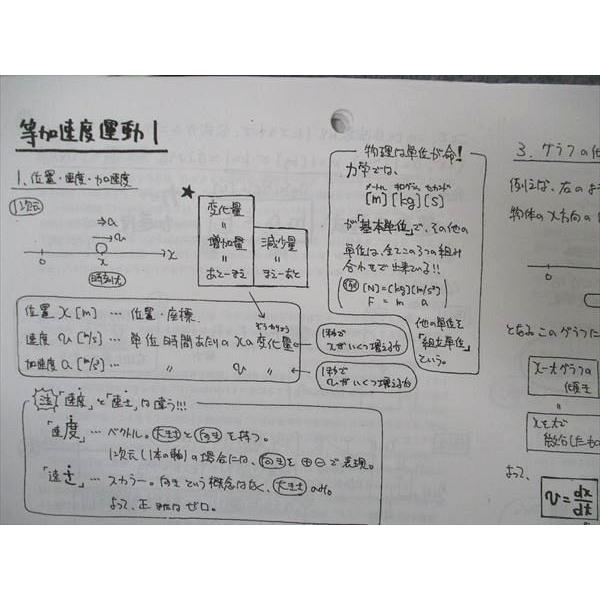 等加速度運動1
1. 位置・速度・加速度
1次元
→a
→v
0 x →x
時刻t
★
変化量
〃
増加量
〃
あと－まえ
減少量
〃
まえ－あと
位置 x [m] … 位置・座標.
速度 v [m/s] … 単位時間あたりの xの変化量.
加速度 a [m/s²] … 〃 v 〃
1秒で
xがいくつ増えるか
1秒で
vがいくつ増えるか
注 「速度」と「速さ」は違う!!!
「速度」… ベクトル。大きさと向きを持つ。
1次元(1本の軸)の場合には、向きを⊕⊖で表現。
「速さ」… スカラー。向きという概念はなく、大きさのみ。
よって、正またはゼロ。
物理は単位が命!
力学では、
メートル キログラム セカンド
[m][kg][s]
が「基本単位」で、その他の
単位は、全てこの3つの組み
合わせで出来ている!!
例 [N]=[kg][m/s²]
F = m a
他の単位を
「組立単位」
という。
3. グラフの
例えば、右のよ
物体のx方向の
0
となみこのグラフに
x-tグラフの
傾き
〃
xをtで
微分したもの
よって、
v = dx/dt